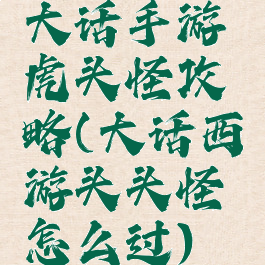 大话手游
虎头怪攻
略(大话西
游头头怪
怎么过)